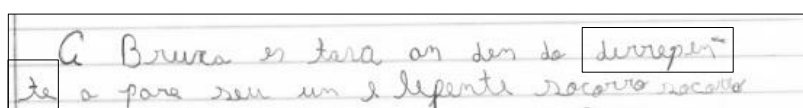 A Bruxa es tava an den do derrepen-
te a pare seu um e lefente socorro socorro